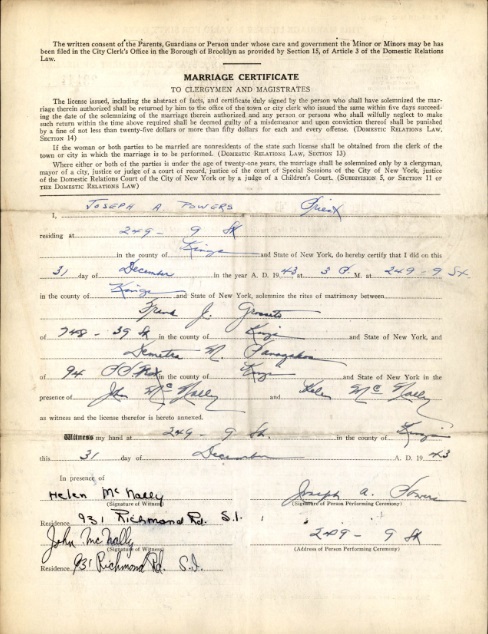 The written consent of the Parents, Guardians or Person under whose care and government the Minor or Minors may be has
been filed in the City Clerk's Office in the Borough of Brooklyn as provided by Section 15, of Article 3 of the Domestic Relations
Law.
MARRIAGE CERTIFICATE
TO CLERGYMEN AND MAGISTRATES
The license issued, including the abstract of facts, and certificate duly signed by the person who shall have solemnized the mar-
riage therein authorized shall be returned by him to the office of the town or city clerk who issued the same within five days succeed-
ing the date of the solemnizing of the marriage therein authorized and any person or persons who shall wilfully neglect to make
such return within the time above required shall be deemed guilty of a misdemeanor and upon conviction thereof shall be punished
by a fine of not less than twenty-five dollars or more than fifty dollars for each and every offense. (DOMESTIC RELATIONS LAW,
SECTION 14)
If the woman or both parties to be married are nonresidents of the state such license shall be obtained from the clerk of the
town or city in which the marriage is to be performed. (DOMESTIC RELATIONS LAW, SECTION 13)
Where either or both of the parties is under the age of twenty-one years, the marriage shall be solemnized only by a clergyman,
mayor of a city, justice or judge of a court of record, justice of the court of Special Sessions of the City of New York, justice
of the Domestic Relations Court of the City of New York or by a judge of a Children's Court. (SUBDIVISION 5, OR SECTION 11 OF
THE DOMESTIC RELATIONS LAW)
I, JOSEPH A POWERS Priest
residing at 249 - 9 St
in the county of Kings and State of New York, do hereby certify that I did on this
31 day of December in the year A. D. 1943 at 3 P. M. at 249 - 9 St.
in the county of Kings and State of New York, solemnize the rites of matrimony between
Frank J.
of 748 - 39 St in the county of Kings and State of New York, and
Demetra M.
of 94 in the county of Kings and State of New York in the
presence of John McNally and Helen McNally
as witness and the license therefor is hereto annexed.
Witness my hand at 249 - 9 St. in the county of Kings
this 31 day of December A. D. 1943
In presence of
Helen McNally Joseph A. Powers
(Signature of Witness) (Signature of Person Performing Ceremony)
Residence 931 Richmond Rd. S.I.
John McNally 249 - 9 St
(Signature of Witness) (Address of Person Performing Ceremony)
Residence 931 Richmond Rd. S.I.